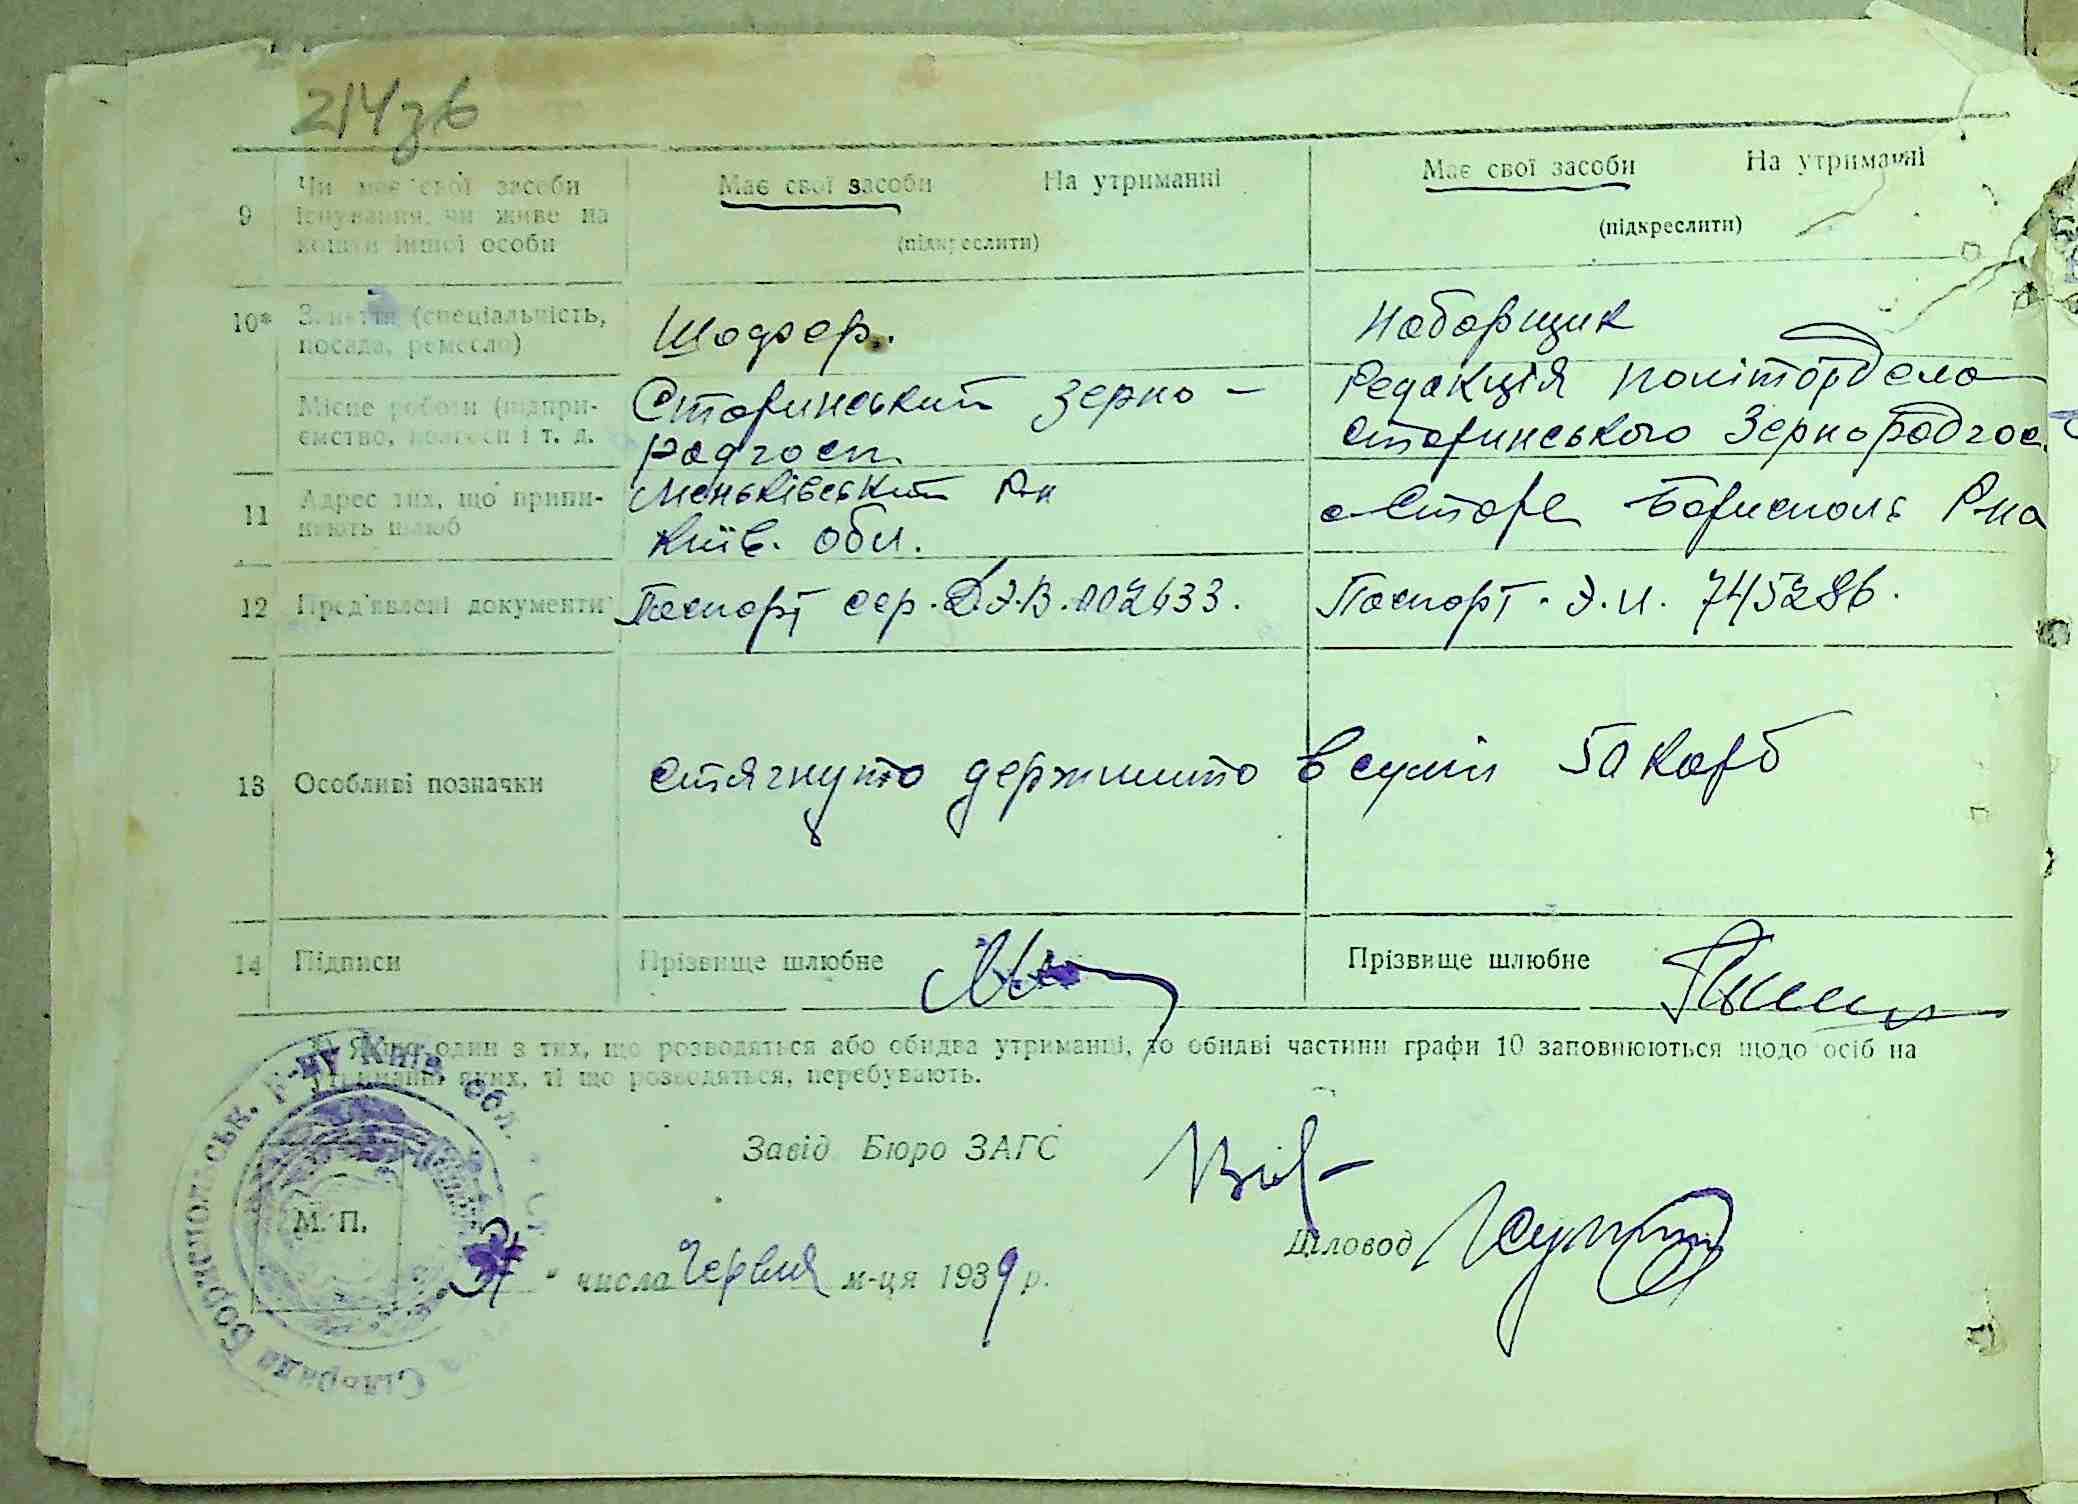 214зв
9 Чи має свої засоби існування, чи живе на кошти іншої особи
Має свої засоби На утриманні
(підкреслити)
Має свої засоби На утриманні
(підкреслити)
10* Заняття (спеціальність, посада, ремесло)
Шофер.
Наборщик
Місце роботи (підпри-
ємство, колгосп і т. д.
Старинський Зерно-
радгосп
Редакція політотдела
Старинського Зернорадгос
11 Адрес тих, що припи-
няють шлюб
Маньківський Р-н
Київ. обл.
с. Старе Бориспол Р-на
12 Пред'явлені документи
Паспорт сер. Д.Э.В. 002633.
Паспорт. Э.И. 745286.
13 Особливі позначки
Стягнуто держмито в сумі 50 карб
14 Підписи
Прізвище шлюбне
Прізвище шлюбне
*) Якщо один з тих, що розводяться або обидва утриманці, то обидві частини графи 10 заповнюються щодо осіб на
утриманні яких, ті що розводяться, перебувають.
Завід Бюро ЗАГС
М. П.
Діловод
числа Червня м-ця 1939 р.
Сільрада Бориспольськ. р-ну Київ. обл.